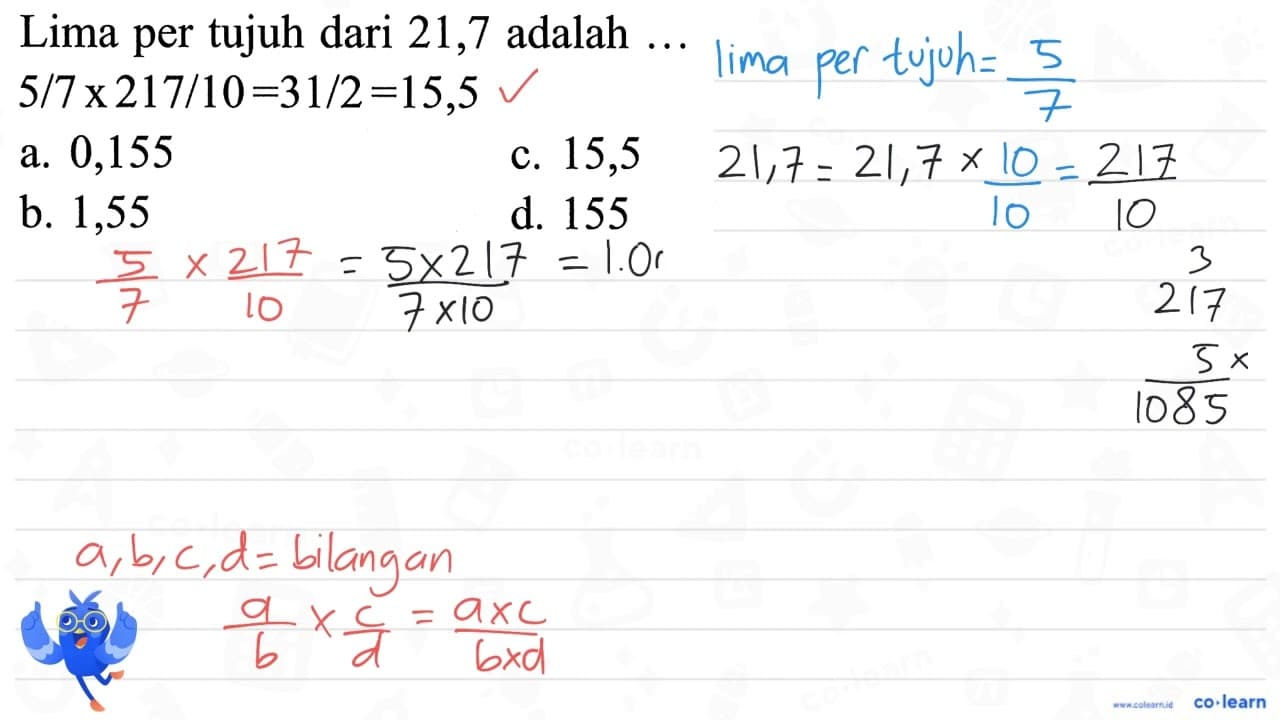 Lima per tujuh dari 21,7 adalah ...
5/7 x 217/10 =31/2 =15,5 ✓
a. 0,155
c. 15,5
b. 1,55
d. 155
lima per tujuh = 5/7
21,7 = 21,7 × 10/10 = 217/10
5/7 × 217/10 = 5×217/7×10 = 1.0
3
217
5 ×
1085
a, b, c, d = bilangan
a/b × c/d = a×c/b×d
co·learn
www.colearn.id co·learn